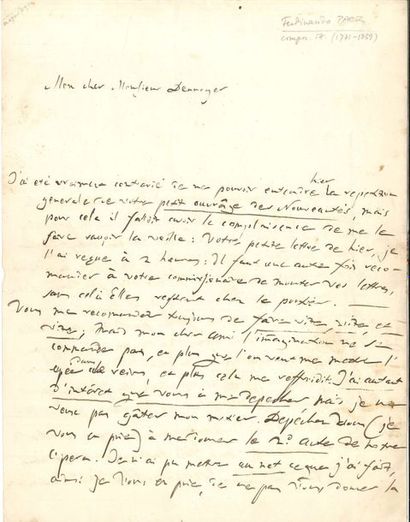 Ferdinando PAER
compos. it. (1771-1839)
Mon cher Monsieur Dennoyer
J'ai été vraiment contrarié de ne pouvoir entendre hier la répétition
generale de votre petit ouvrâge des Nouveautés, mais
pour cela il falloit avoir la complaisance de me le
faire savoir la veille: Votre petite lettre de hier, je
l'ai reçue à 2 heures: Il faut une autre fois reco-
mander à votre commissionaire de monter vos lettres,
sans cela Elles restent chez le portier.
Vous me recomandez toujours de faire vite, vite, et
vite; Mais mon cher ami l'imagination ne se
commande pas, et plus que l'on veut me mettre l'
epée dans les reins, et plus cela me reffroidit. J'ai autant
d'intérêt que vous à me depecher mais je ne
veux pas gâter mon metier. Depêchez vous (je
vous en prie) à me donner le 2d. acte de notre
opera. Je n'ai pu mettre au net ce que j'ai fait,
ainsi je vous en prie, de ne pas vous donner la